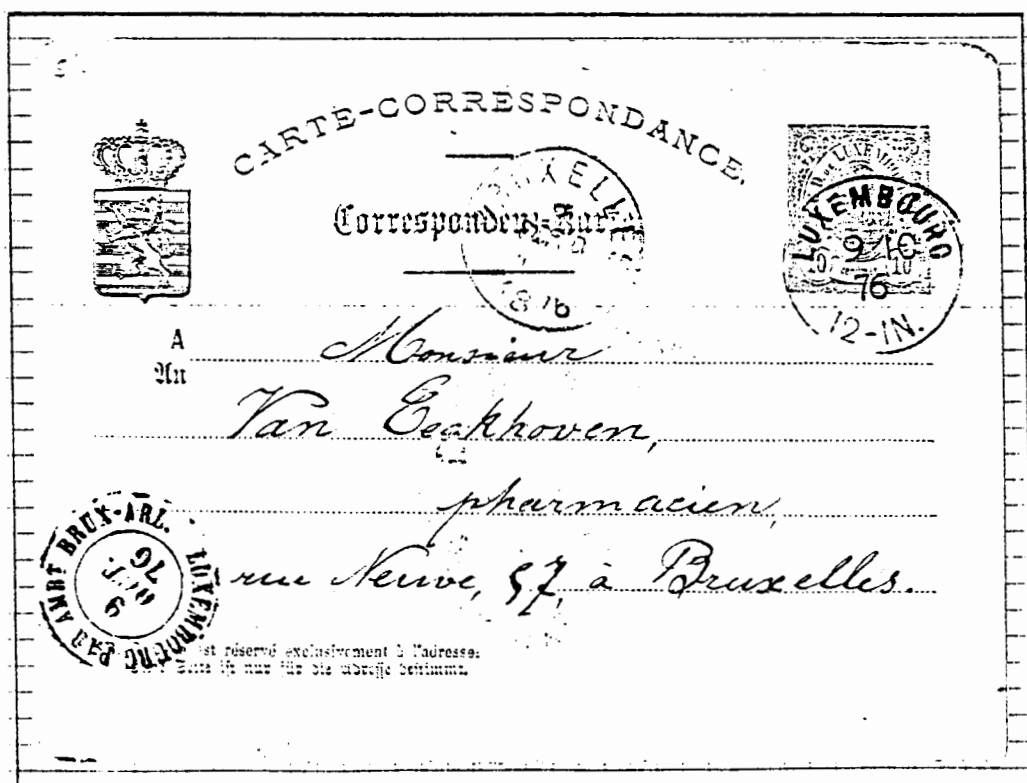 CARTE-CORRESPONDANCE.
Correspondenz-Karte
LUXEMBOURG
9 10
76
12-1N.
10
1876
A
An
Monsieur
Van Eeckhoven,
pharmacien,
rue Neuve, 57, à Bruxelles.
LUXEMBOURG PAR AMBT BRUX-ARL.
9
OCT.
76
est réservé exclusivement à l'adresse.
Seite ist nur für die Adresse bestimmt.